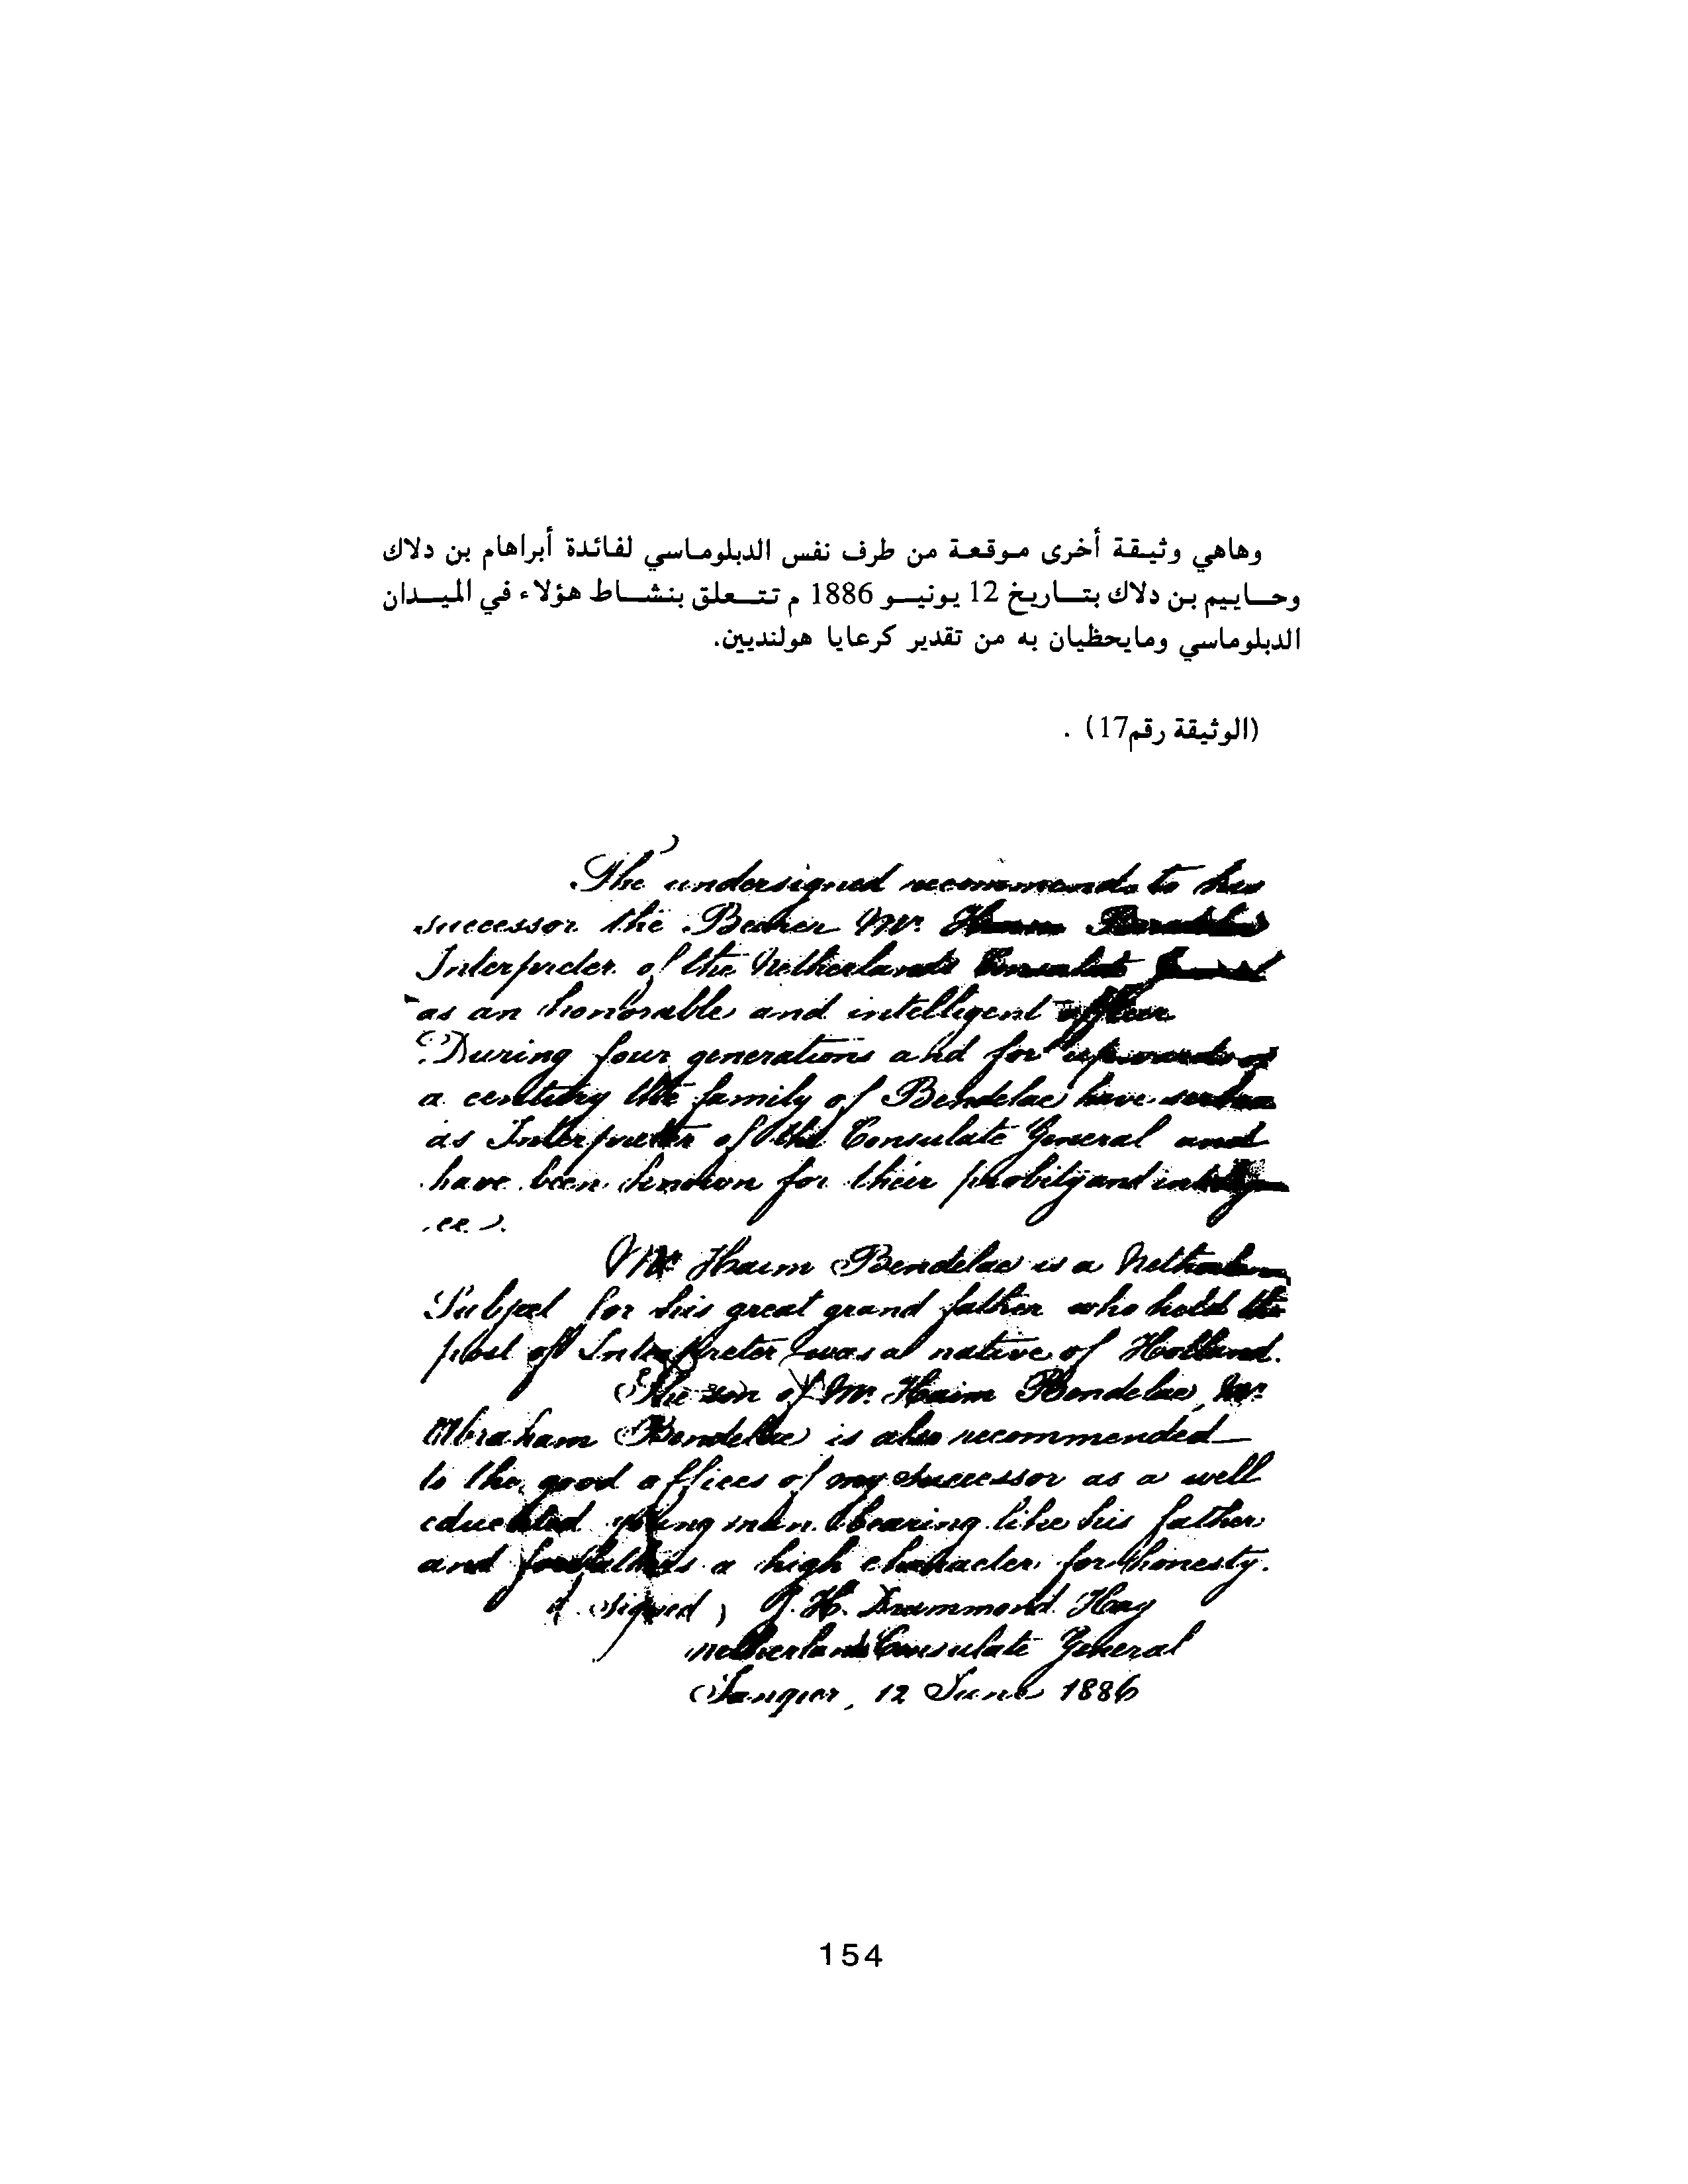 وهاهي وثيقة أخرى موقعة من طرف نفس الدبلوماسي لفائدة أبراهام بن دلاك
وحاييم بن دلاك بتاريخ 12 يونيو 1886 م تتعلق بنشاط هؤلاء في الميدان
الدبلوماسي ومايحظيان به من تقدير كرعايا هولنديين.
(الوثيقة رقم17) .
The undersigned recommends to his
successor the Bearer Mr.
Interpreter of the Netherlands Consulate
as an honorable and intelligent officer
During four generations and for upwards of
a century the family of Bendelac have
as Interpreter of the Consulate General and
have been known for their probity and intelligen
ce.
Mr Haim Bendelac is a
Subject for his great grand father who held the
post of Interpreter was a native of Holland.
The son of Mr. Haim Bendelac, Mr.
Abraham Bendelac is also recommended
to the good offices of my successor as a well
educated young man bearing like his father
and forefathers a high character for honesty.
(signed) J. H. Drummond Hay
Netherlands Consulate General
Tangier, 12 June 1886
154